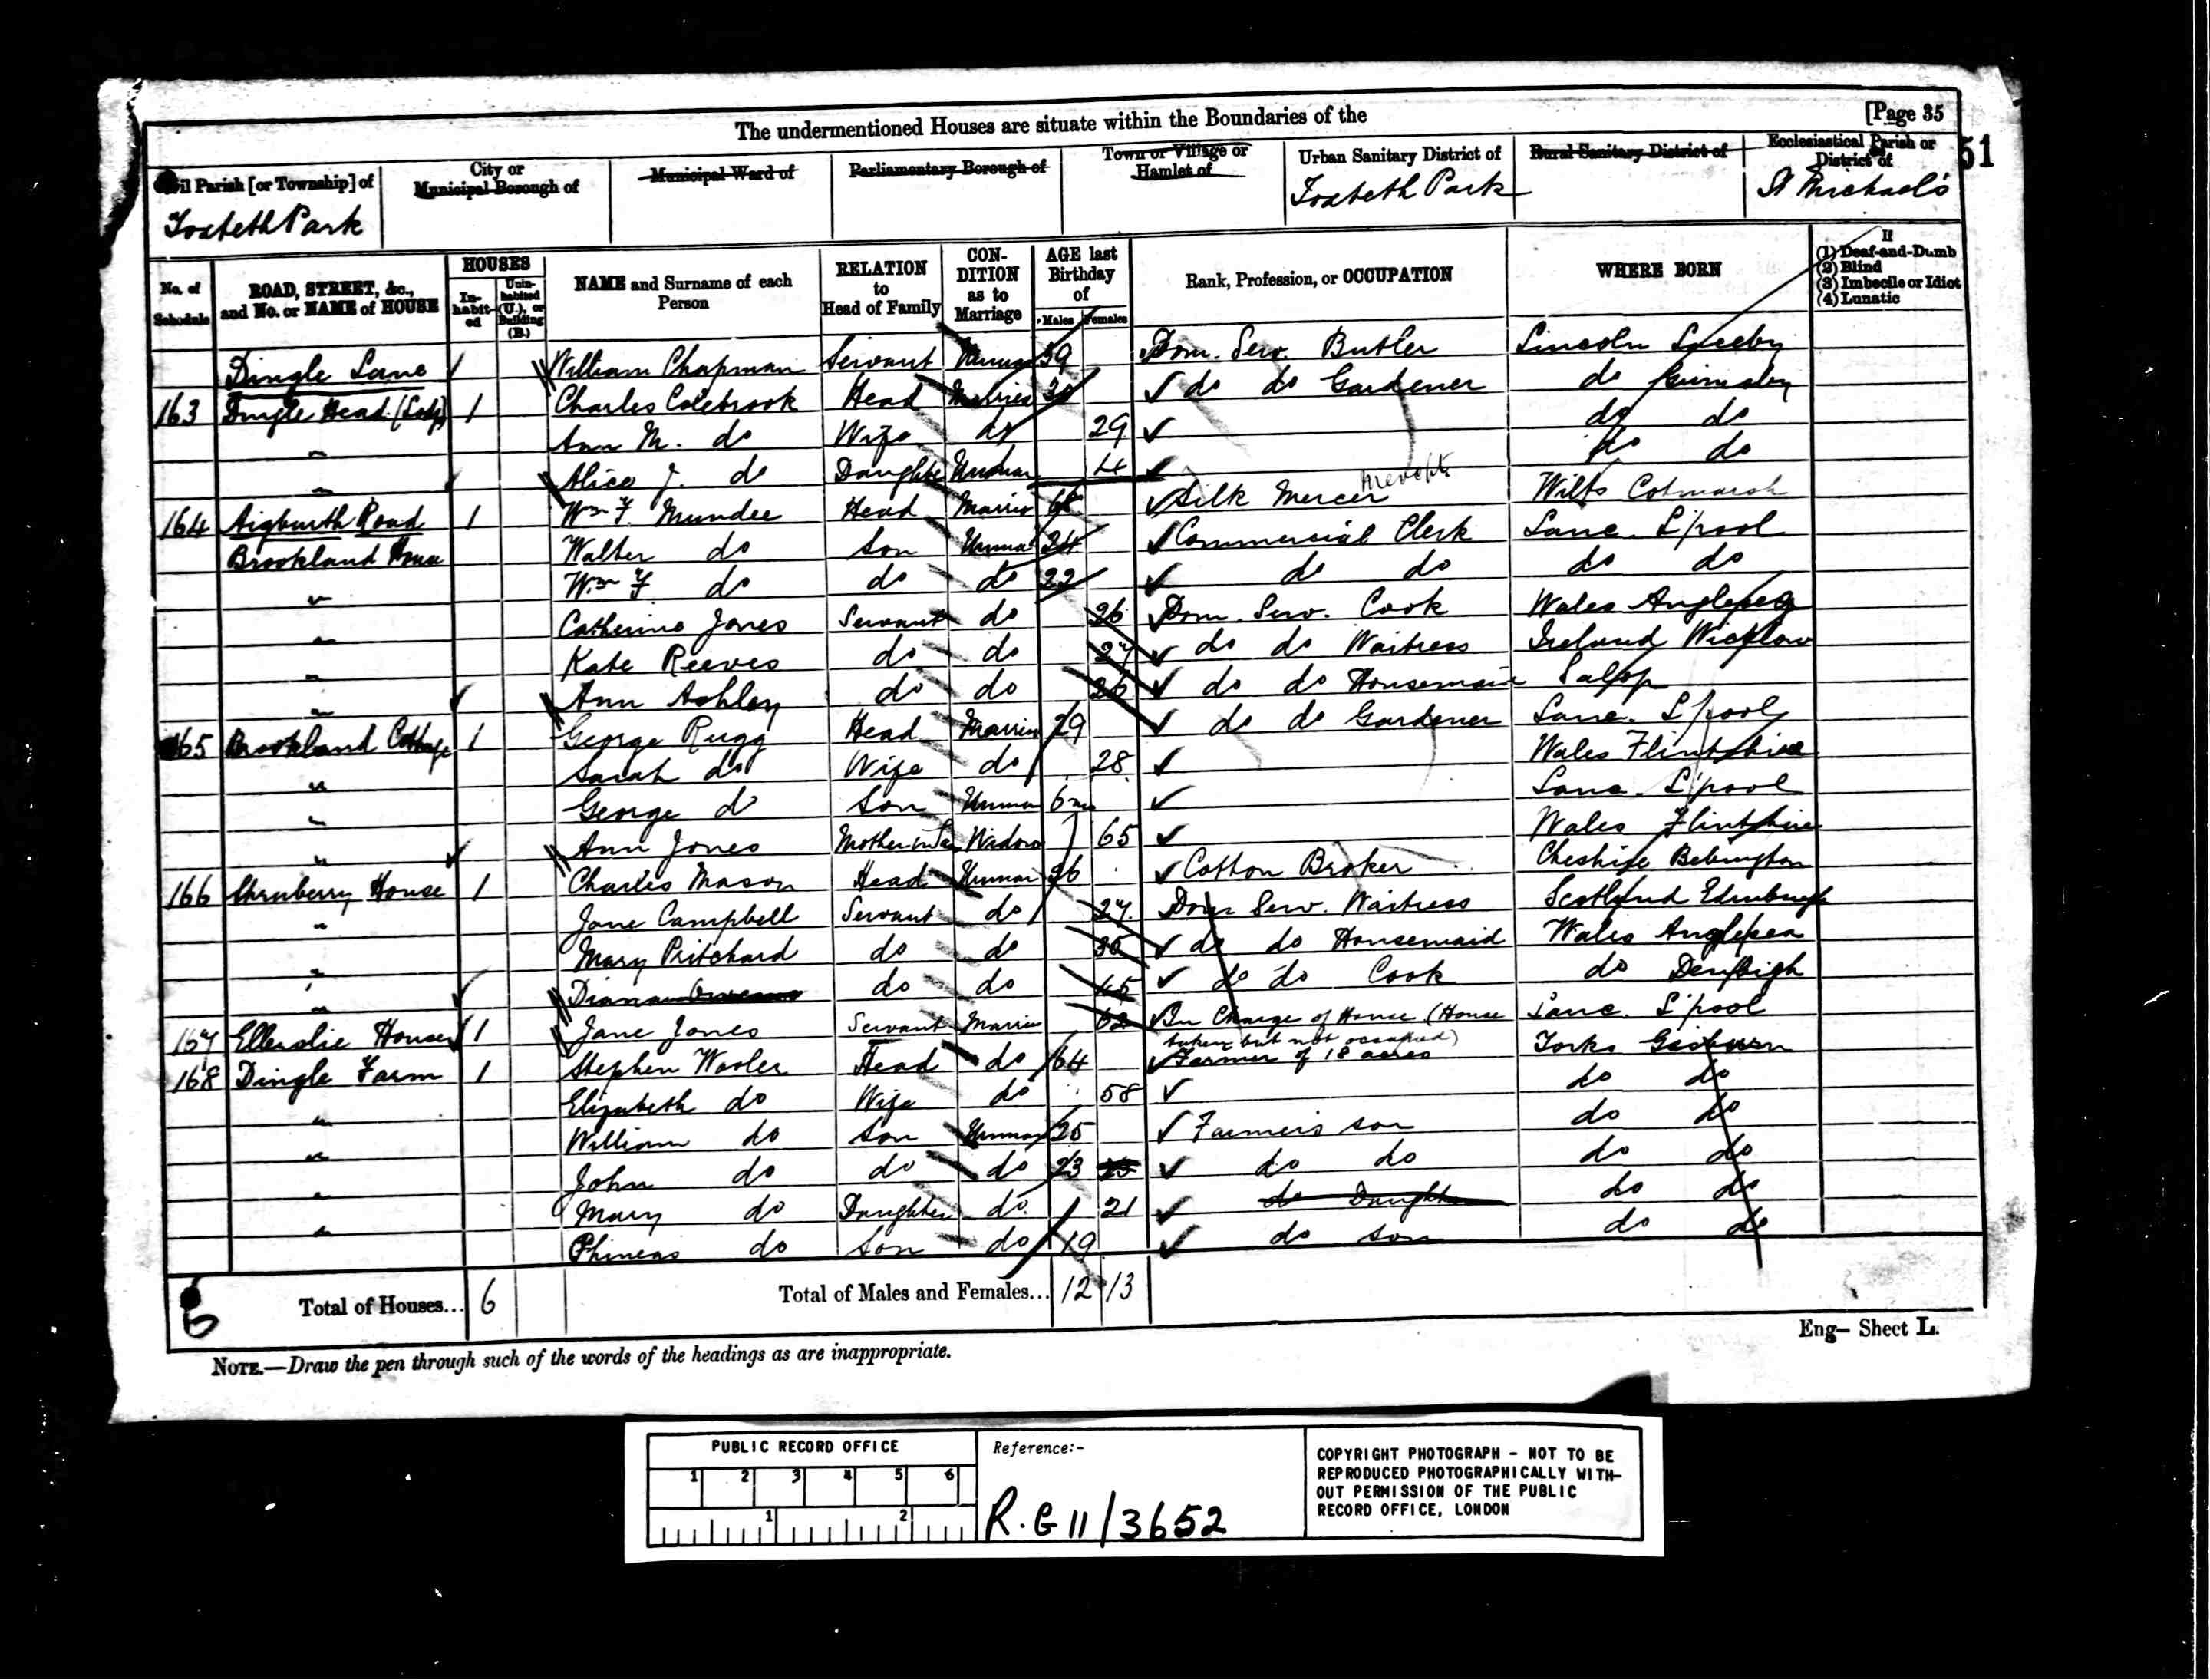 The undermentioned Houses are situate within the Boundaries of the
[Page 35
51
Civil Parish [or Township] of
Toxteth Park
City or Municipal Borough of
Municipal Ward of
Parliamentary Borough of
Town or Village or Hamlet of
Urban Sanitary District of
Toxteth Park
Rural Sanitary District of
Ecclesiastical Parish or District of
St Michael's
No. of Schedule
ROAD, STREET, &c., and No. or NAME of HOUSE
HOUSES
In-habit-ed
Unin-habited (U.), or Building (B.)
NAME and Surname of each Person
RELATION to Head of Family
CON-DITION as to Marriage
AGE last Birthday of
Males
Females
Rank, Profession, or OCCUPATION
WHERE BORN
If
(1) Deaf-and-Dumb
(2) Blind
(3) Imbecile or Idiot
(4) Lunatic
Dingle Lane William Chapman Servant 39 Dom. Serv. Butler Lincoln
163 Dingle Head 1 Charles Colebrook Head Married do do Gardener do Grimsby
" Ann M. do Wife do 29 do do
" Alice J. do Daughter Unmar 4 do do
164 Aigburth Road 1 Wm F. Mundee Head Married Silk Mercer Wilts
Brookland House Walter do Son Unmar 24 Commercial Clerk Lanc. L'pool
" Wm F do do do 22 do do do do
" Catherine Jones Servant do 26 Dom. Serv. Cook Wales Anglesea
" Kate Reeves do do 27 do do Waitress Ireland Wicklow
" Ann Ashley do do 26 do do Housemaid Salop
165 Brookland Cottage 1 George Rugg Head Married 29 do do Gardener Lanc. L'pool
" Sarah do Wife do 28 Wales Flintshire
" George do Son Unmar 6 mo Lanc. L'pool
" Ann Jones Mother in Law Widow 65 Wales Flintshire
166 Shrubbery House 1 Charles Mason Head Unmar 26 Cotton Broker Cheshire Bebington
" Jane Campbell Servant do 27 Dom Serv. Waitress Scotland Edinburgh
" Mary Pritchard do do 35 do do Housemaid Wales Anglesea
" Diana do do 45 do do Cook do Denbigh
167 Ellerslie House 1 Jane Jones Servant Married 62 In Charge of House (House taken but not occupied) Lanc. L'pool
168 Dingle Farm 1 Stephen Wooler Head do 64 Farmer of 18 acres Yorks Gisburn
" Elizabeth do Wife do 58 do do
" William do Son Unmar 25 Farmers son do do
" John do do do 23 do do do do
" Mary do Daughter do 21 do Daughter do do
" Phineas do Son do 19 do son do do
Total of Houses... 6
Total of Males and Females... 12 13
6
Eng– Sheet L.
NOTE.—Draw the pen through such of the words of the headings as are inappropriate.
PUBLIC RECORD OFFICE
1 2 3 4 5 6
1 2
Reference:-
R.G 11/3652
COPYRIGHT PHOTOGRAPH - NOT TO BE
REPRODUCED PHOTOGRAPHICALLY WITH-
OUT PERMISSION OF THE PUBLIC
RECORD OFFICE, LONDON